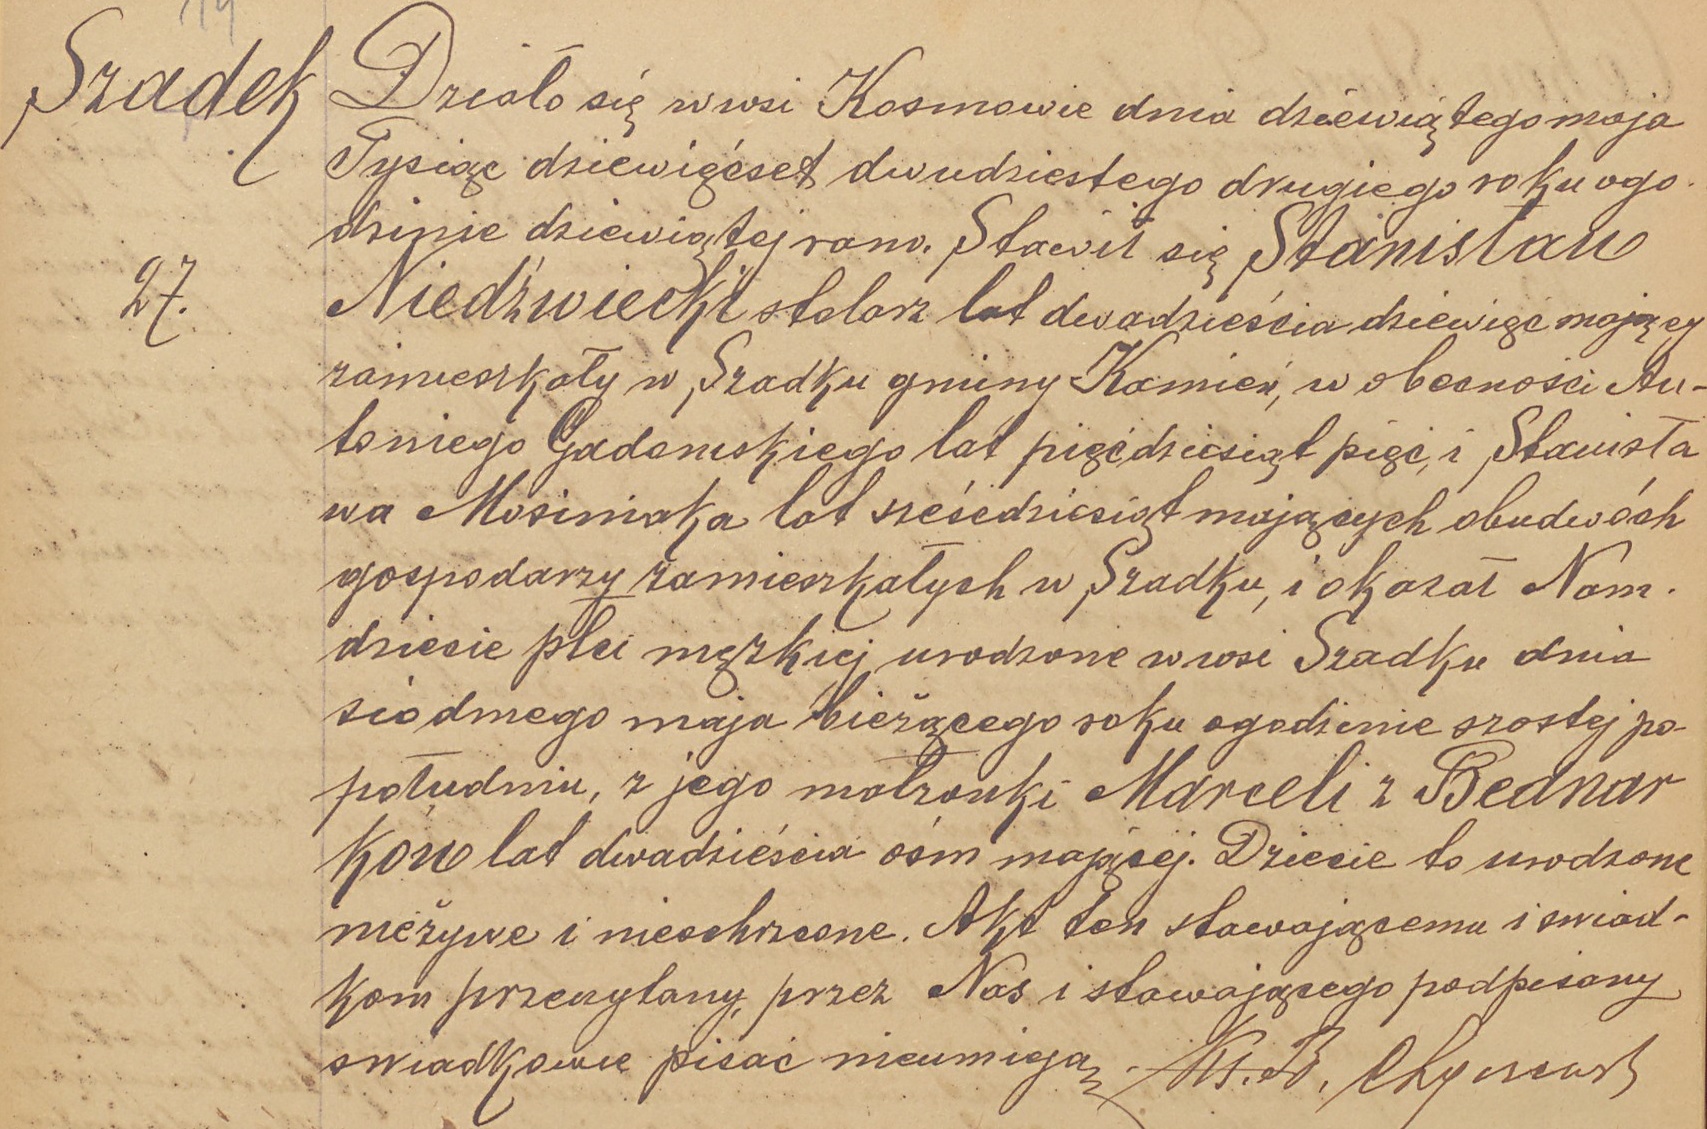 Szadek
27.
Działo się w wsi Kosmowie dnia dziewiątego maja
Tysiąc dziewięćset dwudziestego drugiego roku ogo
dzinie dziewiątej rano. Stawił się Stanisław
Niedźwiecki stolarz lat dwadzieścia dziewięć mający
zamieszkały w Szadku gminy Kamień, w obecności An-
toniego Gadomskiego lat pięćdziesiąt pięć, i Stanisła
wa Mosiniaka lat sześćdziesiąt mających obudwóch
gospodarzy zamieszkałych w Szadku, i okazał Nam.
dziecie płci męzkiej, urodzone w wsi Szadku dnia
siódmego maja bieżącego roku ogodzinie szostej po
południu, z jego małżonki Marceli z Bednar
ków lat dwadzieścia ośm mającej. Dziecie to urodzone
nieżywe i nieochrzcone. Akt ten stawającemu i swiad-
kom przeczytany, przez Nas i stawającego podpisany
swiadkowie pisać nieumieją Ks. B.